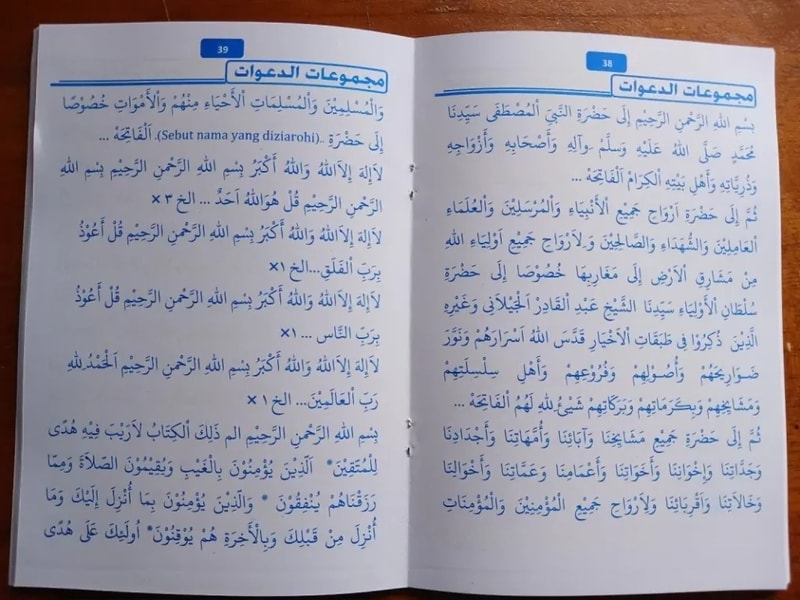 38
مجموعات الدعوات
بِسْمِ اللهِ الرَّحْمٰنِ الرَّحِيْمِ إِلَى حَضْرَةِ النَّبِيِّ الْمُصْطَفَى سَيِّدِنَا
مُحَمَّدٍ صَلَّى اللهُ عَلَيْهِ وَسَلَّمْ وَآلِهِ وَأَصْحَابِهِ وَأَزْوَاجِهِ
وَذُرِّيَّاتِهِ وَأَهْلِ بَيْتِهِ الْكِرَامْ اَلْفَاتِحَةْ ...
ثُمَّ إِلَى حَضْرَةِ اَرْوَاحِ جَمِيْعِ الْأَنْبِيَاءِ وَالْمُرْسَلِيْنَ وَالْعُلَمَاءِ
الْعَامِلِيْنَ وَالشُّهَدَاءِ وَالصَّالِحِيْنَ وَلِاَرْوَاحِ جَمِيْعِ اَوْلِيَاءِ اللهِ
مِنْ مَشَارِقِ الْاَرْضِ إِلَى مَغَارِبِهَا خُصُوْصًا إِلَى حَضْرَةِ
سُلْطَانِ الْأَوْلِيَاءِ سَيِّدِنَا الشَّيْخِ عَبْدِ الْقَادِرْ الْجَيْلَانِي وَغَيْرِهِ
الَّذِيْنَ ذُكِرُوْا فِى طَبَقَاتِ الْأَخْيَارِ قَدَّسَ اللهُ اَسْرَارَهُمْ وَنَوَّرَ
ضَوَارِيْحَهُمْ وَأُصُوْلِهِمْ وَفُرُوْعِهِمْ وَأَهْلِ سِلْسِلَتِهِمْ
وَمَشَايِخِهِمْ وَبِكَرَمَاتِهِمْ وَبَرَكَاتِهِمْ شَيْئٌ لِلهِ لَهُمُ الْفَاتِحَةْ ...
ثُمَّ إِلَى حَضْرَةِ جَمِيْعِ مَشَايِخِنَا وَآبَائِنَا وَأُمَّهَاتِنَا وَأَجْدَادِنَا
وَجَدَّاتِنَا وَإِخْوَانِنَا وَأَخَوَاتِنَا وَأَعْمَامِنَا وَعَمَّاتِنَا وَأَخْوَالِنَا
وَخَالَاتِنَا وَاَقْرِبَائِنَا وَلِاَرْوَاحِ جَمِيْعِ الْمُؤْمِنِيْنَ وَالْمُؤْمِنَاتِ
39
مجموعات الدعوات
وَالْمُسْلِمِيْنَ وَالْمُسْلِمَاتِ الْأَحْيَاءِ مِنْهُمْ وَالْأَمْوَاتِ خُصُوْصًا
إِلَى حَضْرَةِ ..(Sebut nama yang diziarohi). اَلْفَاتِحَةْ ...
لَاإِلهَ إِلاَّاللهُ وَاللهُ أَكْبَرُ بِسْمِ اللهِ الرَّحْمٰنِ الرَّحِيْمِ بِسْمِ اللهِ
الرَّحْمٰنِ الرَّحِيْمِ قُلْ هُوَاللهُ اَحَدٌ ... الخ ٣ ×
لَاإِلهَ إِلاَّاللهُ وَاللهُ أَكْبَرُ بِسْمِ اللهِ الرَّحْمٰنِ الرَّحِيْمِ قُلْ أَعُوْذُ
بِرَبِّ الْفَلَقِ...الخ ١×
لَاإِلهَ إِلاَّاللهُ وَاللهُ أَكْبَرُ بِسْمِ اللهِ الرَّحْمٰنِ الرَّحِيْمِ قُلْ أَعُوْذُ
بِرَبِّ النَّاس ... ١×
لَاإِلهَ إِلاَّاللهُ وَاللهُ أَكْبَرُ بِسْمِ اللهِ الرَّحْمٰنِ الرَّحِيْمِ اَلْحَمْدُ لِلهِ
رَبِّ الْعَالَمِيْنَ... الخ ١ ×
بِسْمِ اللهِ الرَّحْمٰنِ الرَّحِيْمِ الم ذَلِكَ الْكِتَابُ لَارَيْبَ فِيْهِ هُدًى
لِلْمُتَّقِيْنَ* اَلَّذِيْنَ يُؤْمِنُوْنَ بِالْغَيْبِ وَيُقِيْمُوْنَ الصَّلَاةَ وَمِمَّا
رَزَقْنَاهُمْ يُنْفِقُوْنَ * وَالَّذِيْنَ يُؤْمِنُوْنَ بِمَا أُنْزِلَ إِلَيْكَ وَمَا
أُنْزِلَ مِنْ قَبْلِكَ وَبِالْأَخِرَةِ هُمْ يُوْقِنُوْنَ* اُولَئِكَ عَلَى هُدًى